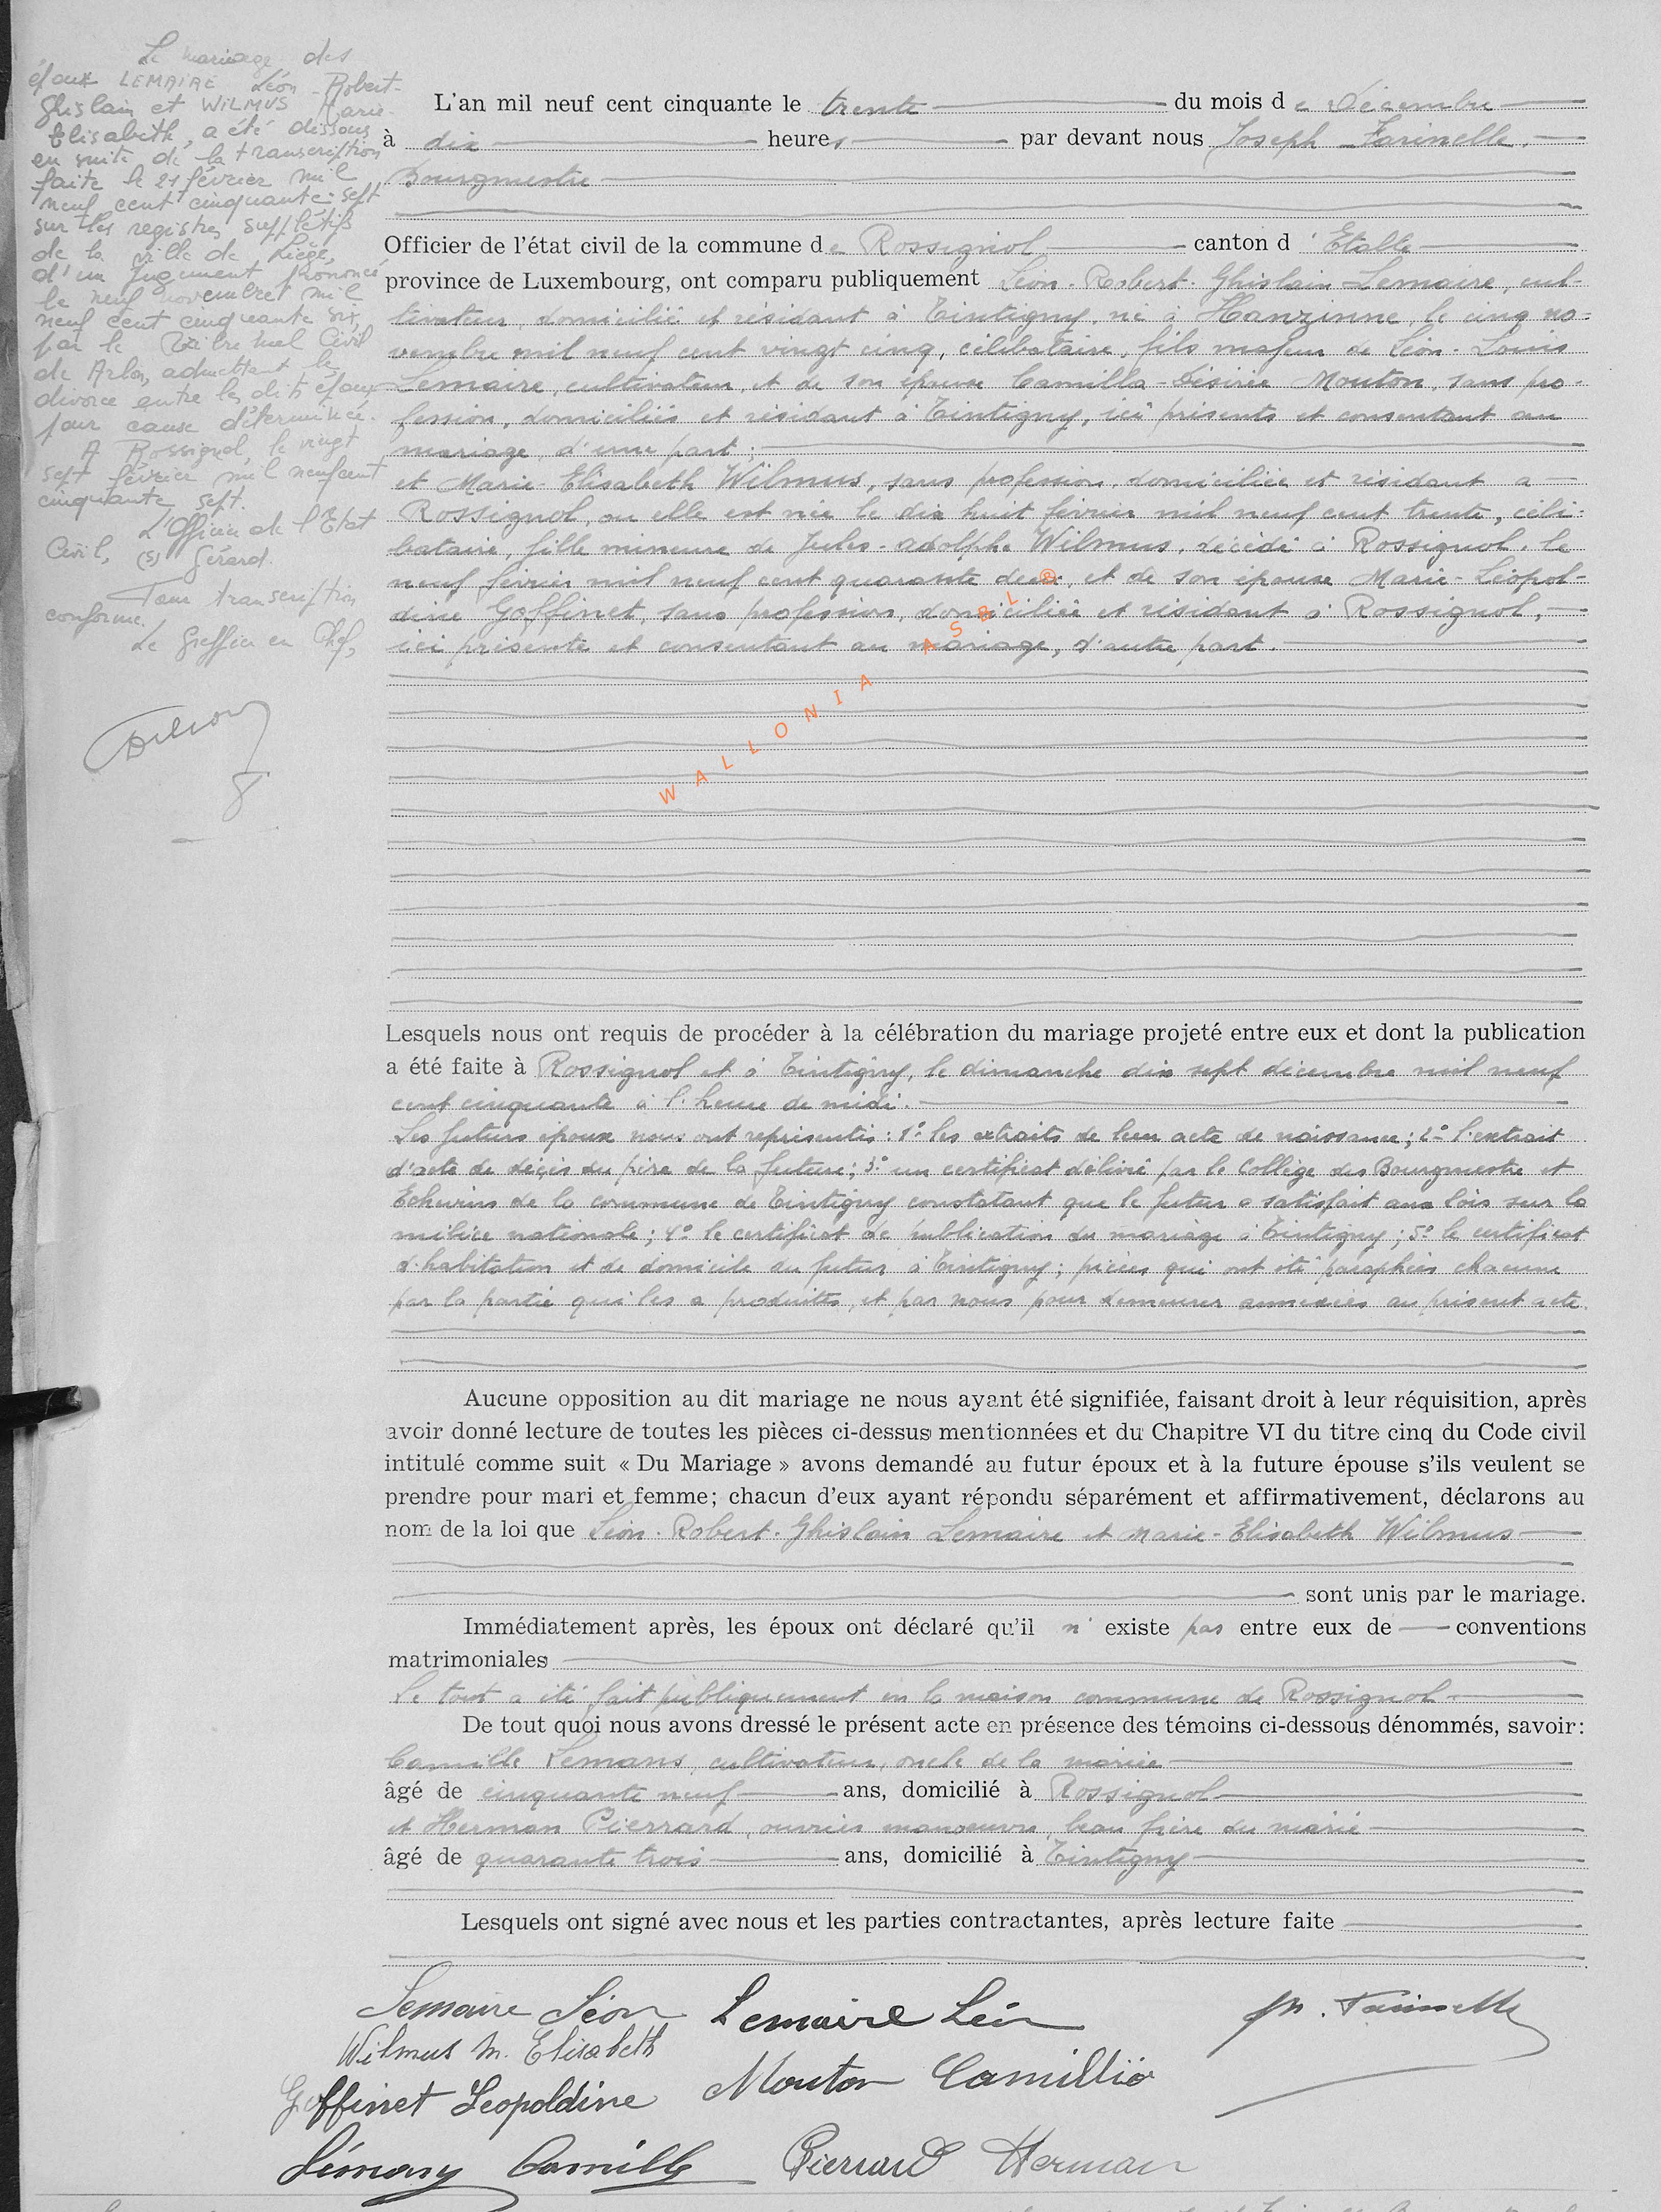 Le mariage des
époux LEMAIRE Léon-Robert-
Ghislain et WILMUS Marie-
Elisabeth, a été dissous
en suite de la transcription
faite le 21 février mil
neuf cent cinquante-sept
sur les registres supplétifs
de la ville de Liège,
d'un jugement prononcé
le neuf novembre mil
neuf cent cinquante six,
par le Tribunal Civil
de Arlon, admettant le
divorce entre les dits époux
pour cause déterminée.
A Rossignol, le vingt
sept février mil neuf cent
cinquante sept.
L'Officier de l'Etat
Civil, (s) Gérard.
Pour transcription
conforme.
Le Greffier en Chef,
L'an mil neuf cent cinquante le trente du mois de Décembre
à dix heures par devant nous Joseph Farinelle,
Bourgmestre
Officier de l'état civil de la commune de Rossignol canton d'Etalle
province de Luxembourg, ont comparu publiquement Léon-Robert-Ghislain Lemaire, cul-
tivateur, domicilié et résidant à Tintigny, né à Hanzinne, le cinq no-
vembre mil neuf cent vingt cinq, célibataire, fils majeur de Léon-Louis
Lemaire, cultivateur, et de son épouse Camilla-Désirée Mouton, sans pro-
fession, domiciliés et résidant à Tintigny, ici présents et consentant au
mariage, d'une part ;
et Marie-Elisabeth Wilmus, sans profession, domiciliée et résidant à
Rossignol, ou elle est née le dix huit février mil neuf cent trente, céli-
bataire, fille mineure de Jules-Adolphe Wilmus, décédé à Rossignol, le
neuf février mil neuf cent quarante deux, et de son épouse Marie-Léopol-
dine Goffinet, sans profession, domiciliée et résidant à Rossignol,
ici présente et consentant au mariage, d'autre part.
WALLONIA ASBL ®
Lesquels nous ont requis de procéder à la célébration du mariage projeté entre eux et dont la publication
a été faite à Rossignol et à Tintigny, le dimanche dix sept décembre mil neuf
cent cinquante à l'heure de midi.
Les futurs époux nous ont représentés : 1° les extraits de leur acte de naissance ; 2° l'extrait
d'acte de décès du père de la future ; 3° un certificat délivré par le Collège des Bourgmestre et
Echevins de la commune de Tintigny constatant que le futur a satisfait aux lois sur la
milice nationale ; 4° le certificat de publication du mariage à Tintigny ; 5° le certificat
d'habitation et de domicile du futur à Tintigny ; pièces qui ont été paraphées chacune
par la partie qui les a produites, et par nous pour demeurer annexées au présent acte.
Aucune opposition au dit mariage ne nous ayant été signifiée, faisant droit à leur réquisition, après
avoir donné lecture de toutes les pièces ci-dessus mentionnées et du Chapitre VI du titre cinq du Code civil
intitulé comme suit « Du Mariage » avons demandé au futur époux et à la future épouse s'ils veulent se
prendre pour mari et femme; chacun d'eux ayant répondu séparément et affirmativement, déclarons au
nom de la loi que Léon-Robert-Ghislain Lemaire et Marie-Elisabeth Wilmus
sont unis par le mariage.
Immédiatement après, les époux ont déclaré qu'il n'existe pas entre eux de conventions
matrimoniales
Le tout a été fait publiquement en la maison commune de Rossignol
De tout quoi nous avons dressé le présent acte en présence des témoins ci-dessous dénommés, savoir:
Camille Lemans, cultivateur, oncle de la mariée
âgé de cinquante neuf ans, domicilié à Rossignol
et Herman Pierrard, ouvrier manoeuvre, beau frère du marié
âgé de quarante trois ans, domicilié à Tintigny
Lesquels ont signé avec nous et les parties contractantes, après lecture faite
Lemaire Léon Lemaire Léon Jh. Farinelle
Wilmus M. Elisabeth
Goffinet Leopoldine Mouton Camillia
Camille Pierrard Herman